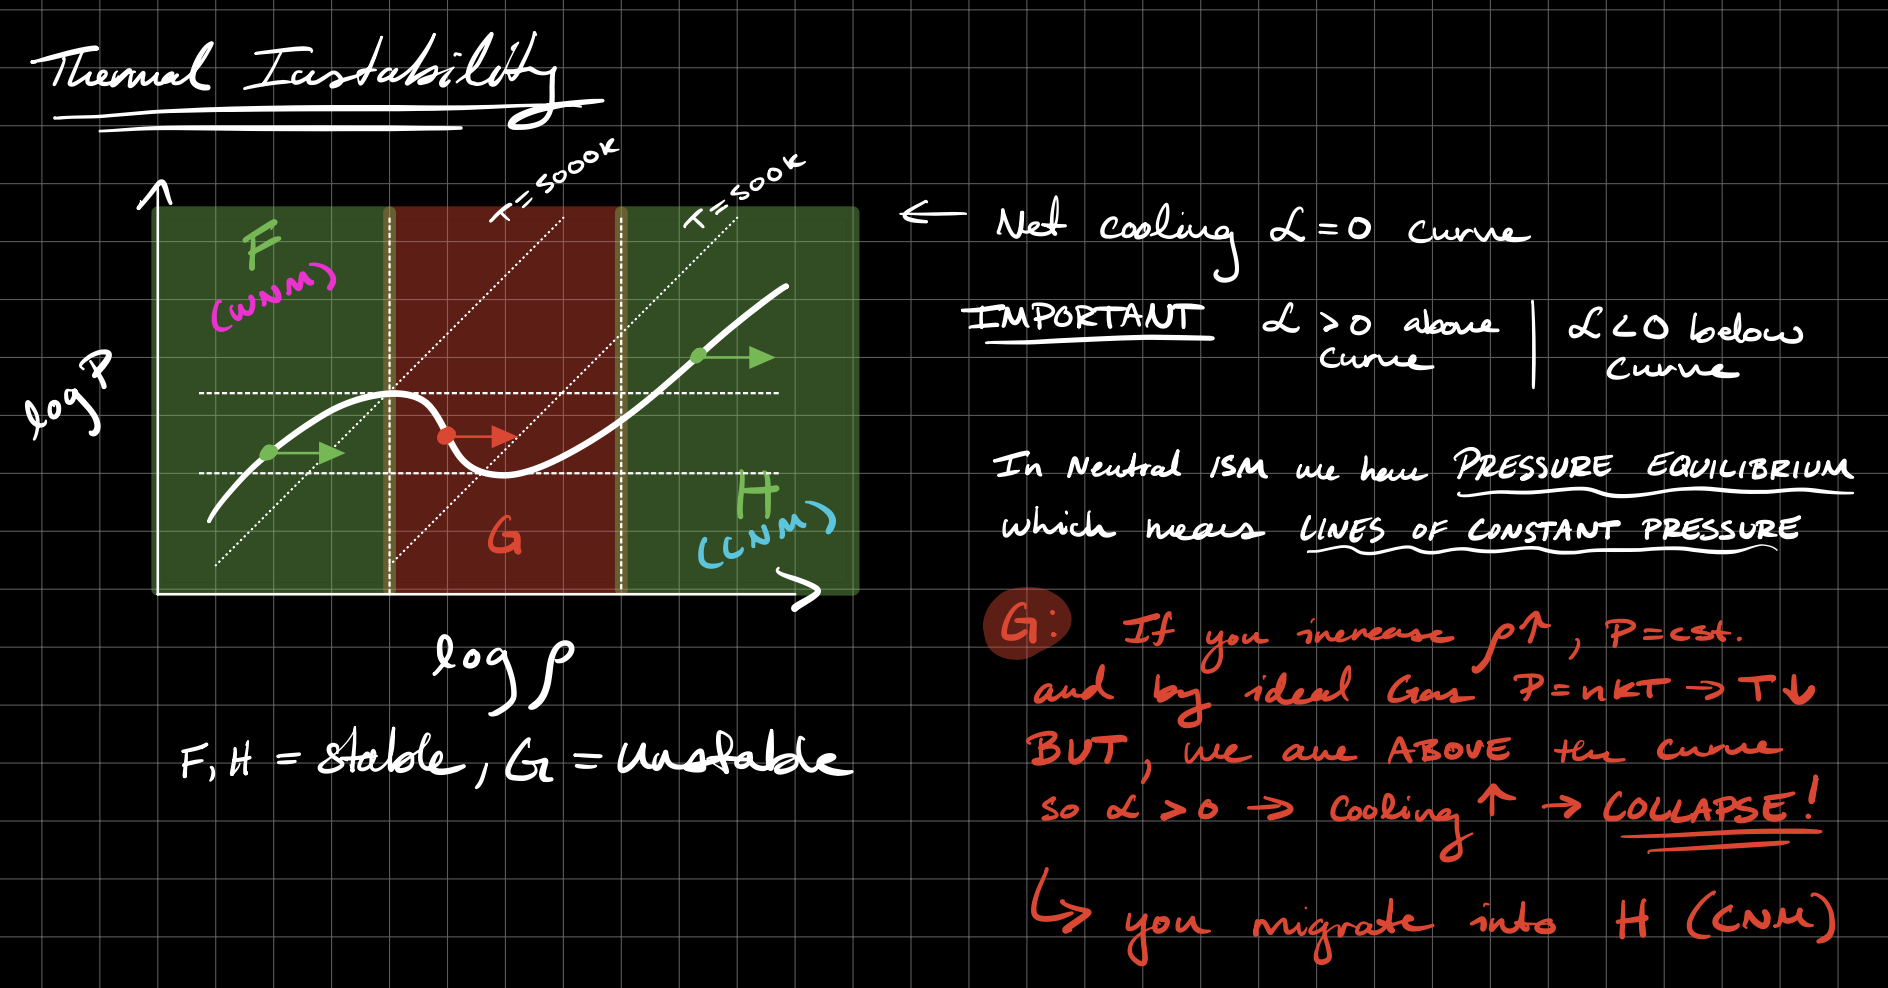 Thermal Instability
T=5000K
T=500K
F
(WNM)
log P
G
H
(CNM)
log ρ
F, H = stable, G = unstable
← Net cooling ℒ = 0 curve
IMPORTANT ℒ > 0 above curve | ℒ < 0 below curve
In Neutral ISM we have PRESSURE EQUILIBRIUM
which means LINES OF CONSTANT PRESSURE
G: If you increase ρ↑, P=cst.
and by ideal Gas P=nkT → T↓
BUT, we are ABOVE the curve
so ℒ > 0 → Cooling ↑ → COLLAPSE!
↳ you migrate into H (CNM)